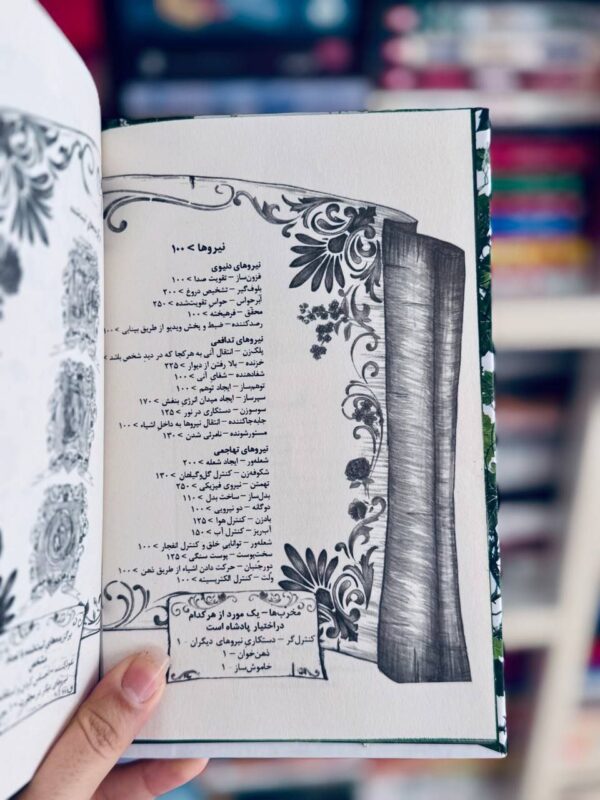 نیروها > ۱۰۰
نیروهای دنیوی
فزون‌ساز – تقویت صدا > ۱۰۰
بلوف‌گیر – تشخیص دروغ > ۲۰۰
اَبَرحواس – حواس تقویت‌شده > ۲۵۰
محقق – فرهیخته > ۱۰۰
رصدکننده – ضبط و پخش ویدیو از طریق بینایی > ۱۰۰
نیروهای تدافعی
پلک‌زن – انتقال آنی به هرکجا که در دیدِ شخص باشد >
خزنده – بالا رفتن از دیوار > ۲۲۵
شفادهنده – شفای آنی > ۱۰۰
توهم‌ساز – ایجاد توهم > ۱۰۰
سپرساز – ایجاد میدان انرژی بنفش > ۱۷۰
سوسوزن – دستکاری در نور > ۱۲۵
جابه‌جاکننده – انتقال نیروها به داخل اشیاء > ۱۰۰
مستورشونده – نامرئی شدن > ۱۳۰
نیروهای تهاجمی
شعله‌ور – ایجاد شعله > ۲۰۰
شکوفه‌زن – کنترل گل‌وگیاهان > ۱۳۰
تهمتن – نیروی فیزیکی > ۲۵۰
بدل‌ساز – ساخت بدل > ۱۱۰
دوگانه – دو نیرویی > ۱۰۰
بادزن – کنترل هوا > ۱۲۵
آب‌ریز – کنترل آب > ۱۵۰
شعله‌ور – توانایی خلق و کنترل انفجار > ۱۰۰
سخت‌پوست – پوست سنگی > ۱۲۵
دورجُنبان – حرکت دادن اشیاء از طریق ذهن > ۱۰۰
ولت – کنترل الکتریسیته > ۱۰۰
مخرب‌ها – یک مورد از هرکدام
در اختیار پادشاه است
کنترل‌گر – دستکاریِ نیروهای دیگران – ۱
ذهن‌خوان – ۱
خاموش‌ساز – ۱